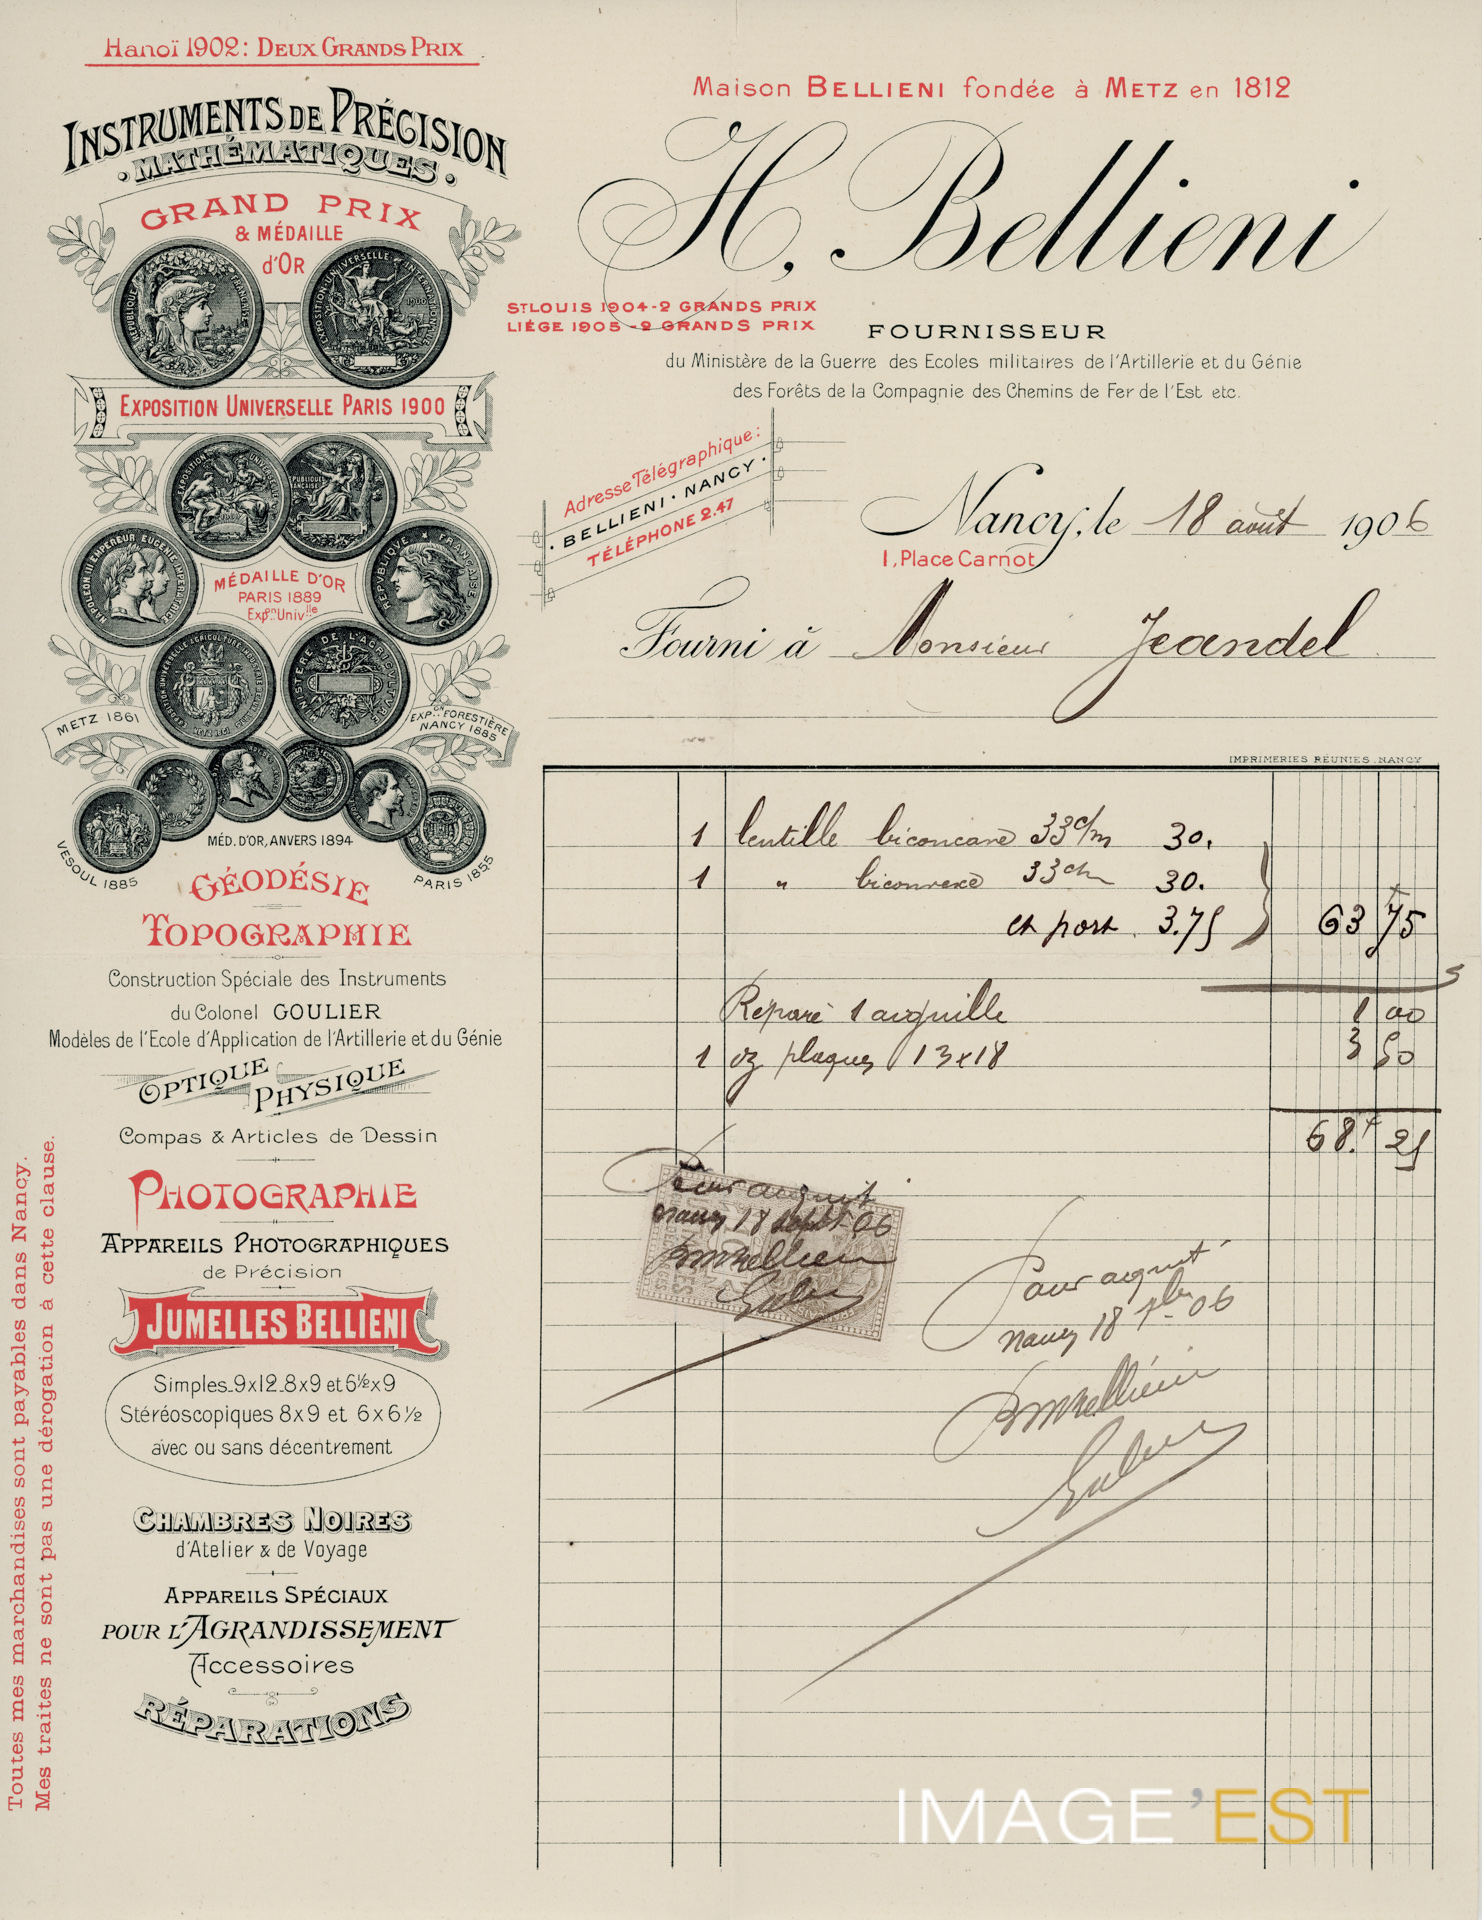 Hanoï 1902: DEUX GRANDS PRIX
INSTRUMENTS DE PRÉCISION
MATHÉMATIQUES
GRAND PRIX
& MÉDAILLE
d'OR
EXPOSITION UNIVERSELLE PARIS 1900
MÉDAILLE D'OR
PARIS 1889
Expon Univlle
METZ 1861
EXPON FORESTIÈRE
NANCY 1885
MÉD. D'OR, ANVERS 1894
VESOUL 1885
PARIS 1855
GÉODÉSIE
TOPOGRAPHIE
Construction Spéciale des Instruments
du Colonel GOULIER
Modèles de l'Ecole d'Application de l'Artillerie et du Génie
OPTIQUE
PHYSIQUE
Compas & Articles de Dessin
PHOTOGRAPHIE
APPAREILS PHOTOGRAPHIQUES
de Précision
JUMELLES BELLIENI
Simples_9x12_8x9 et 6½x9
Stéréoscopiques 8x9 et 6x6½
avec ou sans décentrement
CHAMBRES NOIRES
d'Atelier & de Voyage
APPAREILS SPÉCIAUX
POUR L'AGRANDISSEMENT
Accessoires
RÉPARATIONS
Toutes mes marchandises sont payables dans Nancy.
Mes traites ne sont pas une dérogation à cette clause.
Maison BELLIENI fondée à METZ en 1812
H. Bellieni
ST LOUIS 1904-2 GRANDS PRIX
LIÉGE 1905-2 GRANDS PRIX
FOURNISSEUR
du Ministère de la Guerre des Ecoles militaires de l'Artillerie et du Génie
des Forêts de la Compagnie des Chemins de Fer de l'Est etc.
Adresse Télégraphique:
BELLIENI · NANCY
TÉLÉPHONE 2.47
Nancy, le 18 août 1906
1, Place Carnot
Fourni à Monsieur Jeandel
IMPRIMERIES RÉUNIES . NANCY
1 lentille biconcave 33c/m 30.
1 " biconvexe 33c/m 30.
et port 3.75 63 75
Réparé 1 aiguille 1 00
1 dz plaques 13x18 3 50
68. 25
Pour acquit
Nancy 18 septbr 06
Pour acquit
Nancy 18 7bre 06
IMAGE'EST